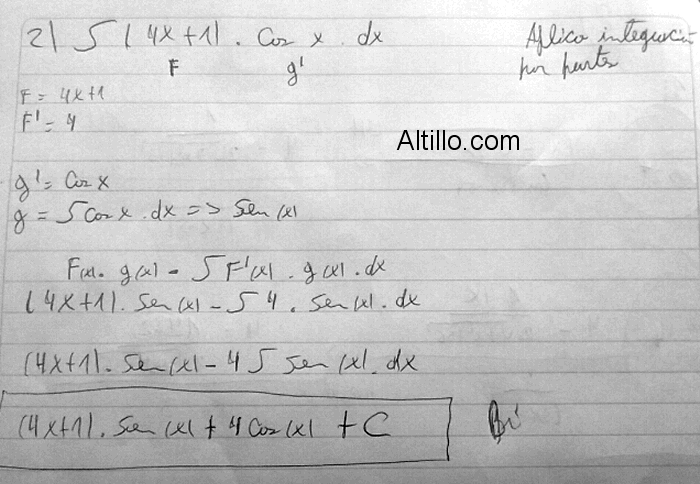 2) ∫ (4x+1) . Cos x . dx
Aplico integración
por partes
F g'
F = 4x+1
F' = 4
Altillo.com
g' = Cos x
g = ∫ Cos x . dx => Sen (x)
F(x) . g(x) - ∫ F'(x) . g(x) . dx
(4x+1) . Sen (x) - ∫ 4 . Sen (x) . dx
(4x+1) . Sen (x) - 4 ∫ Sen (x) . dx
(4x+1) . Sen (x) + 4 Cos (x) + C